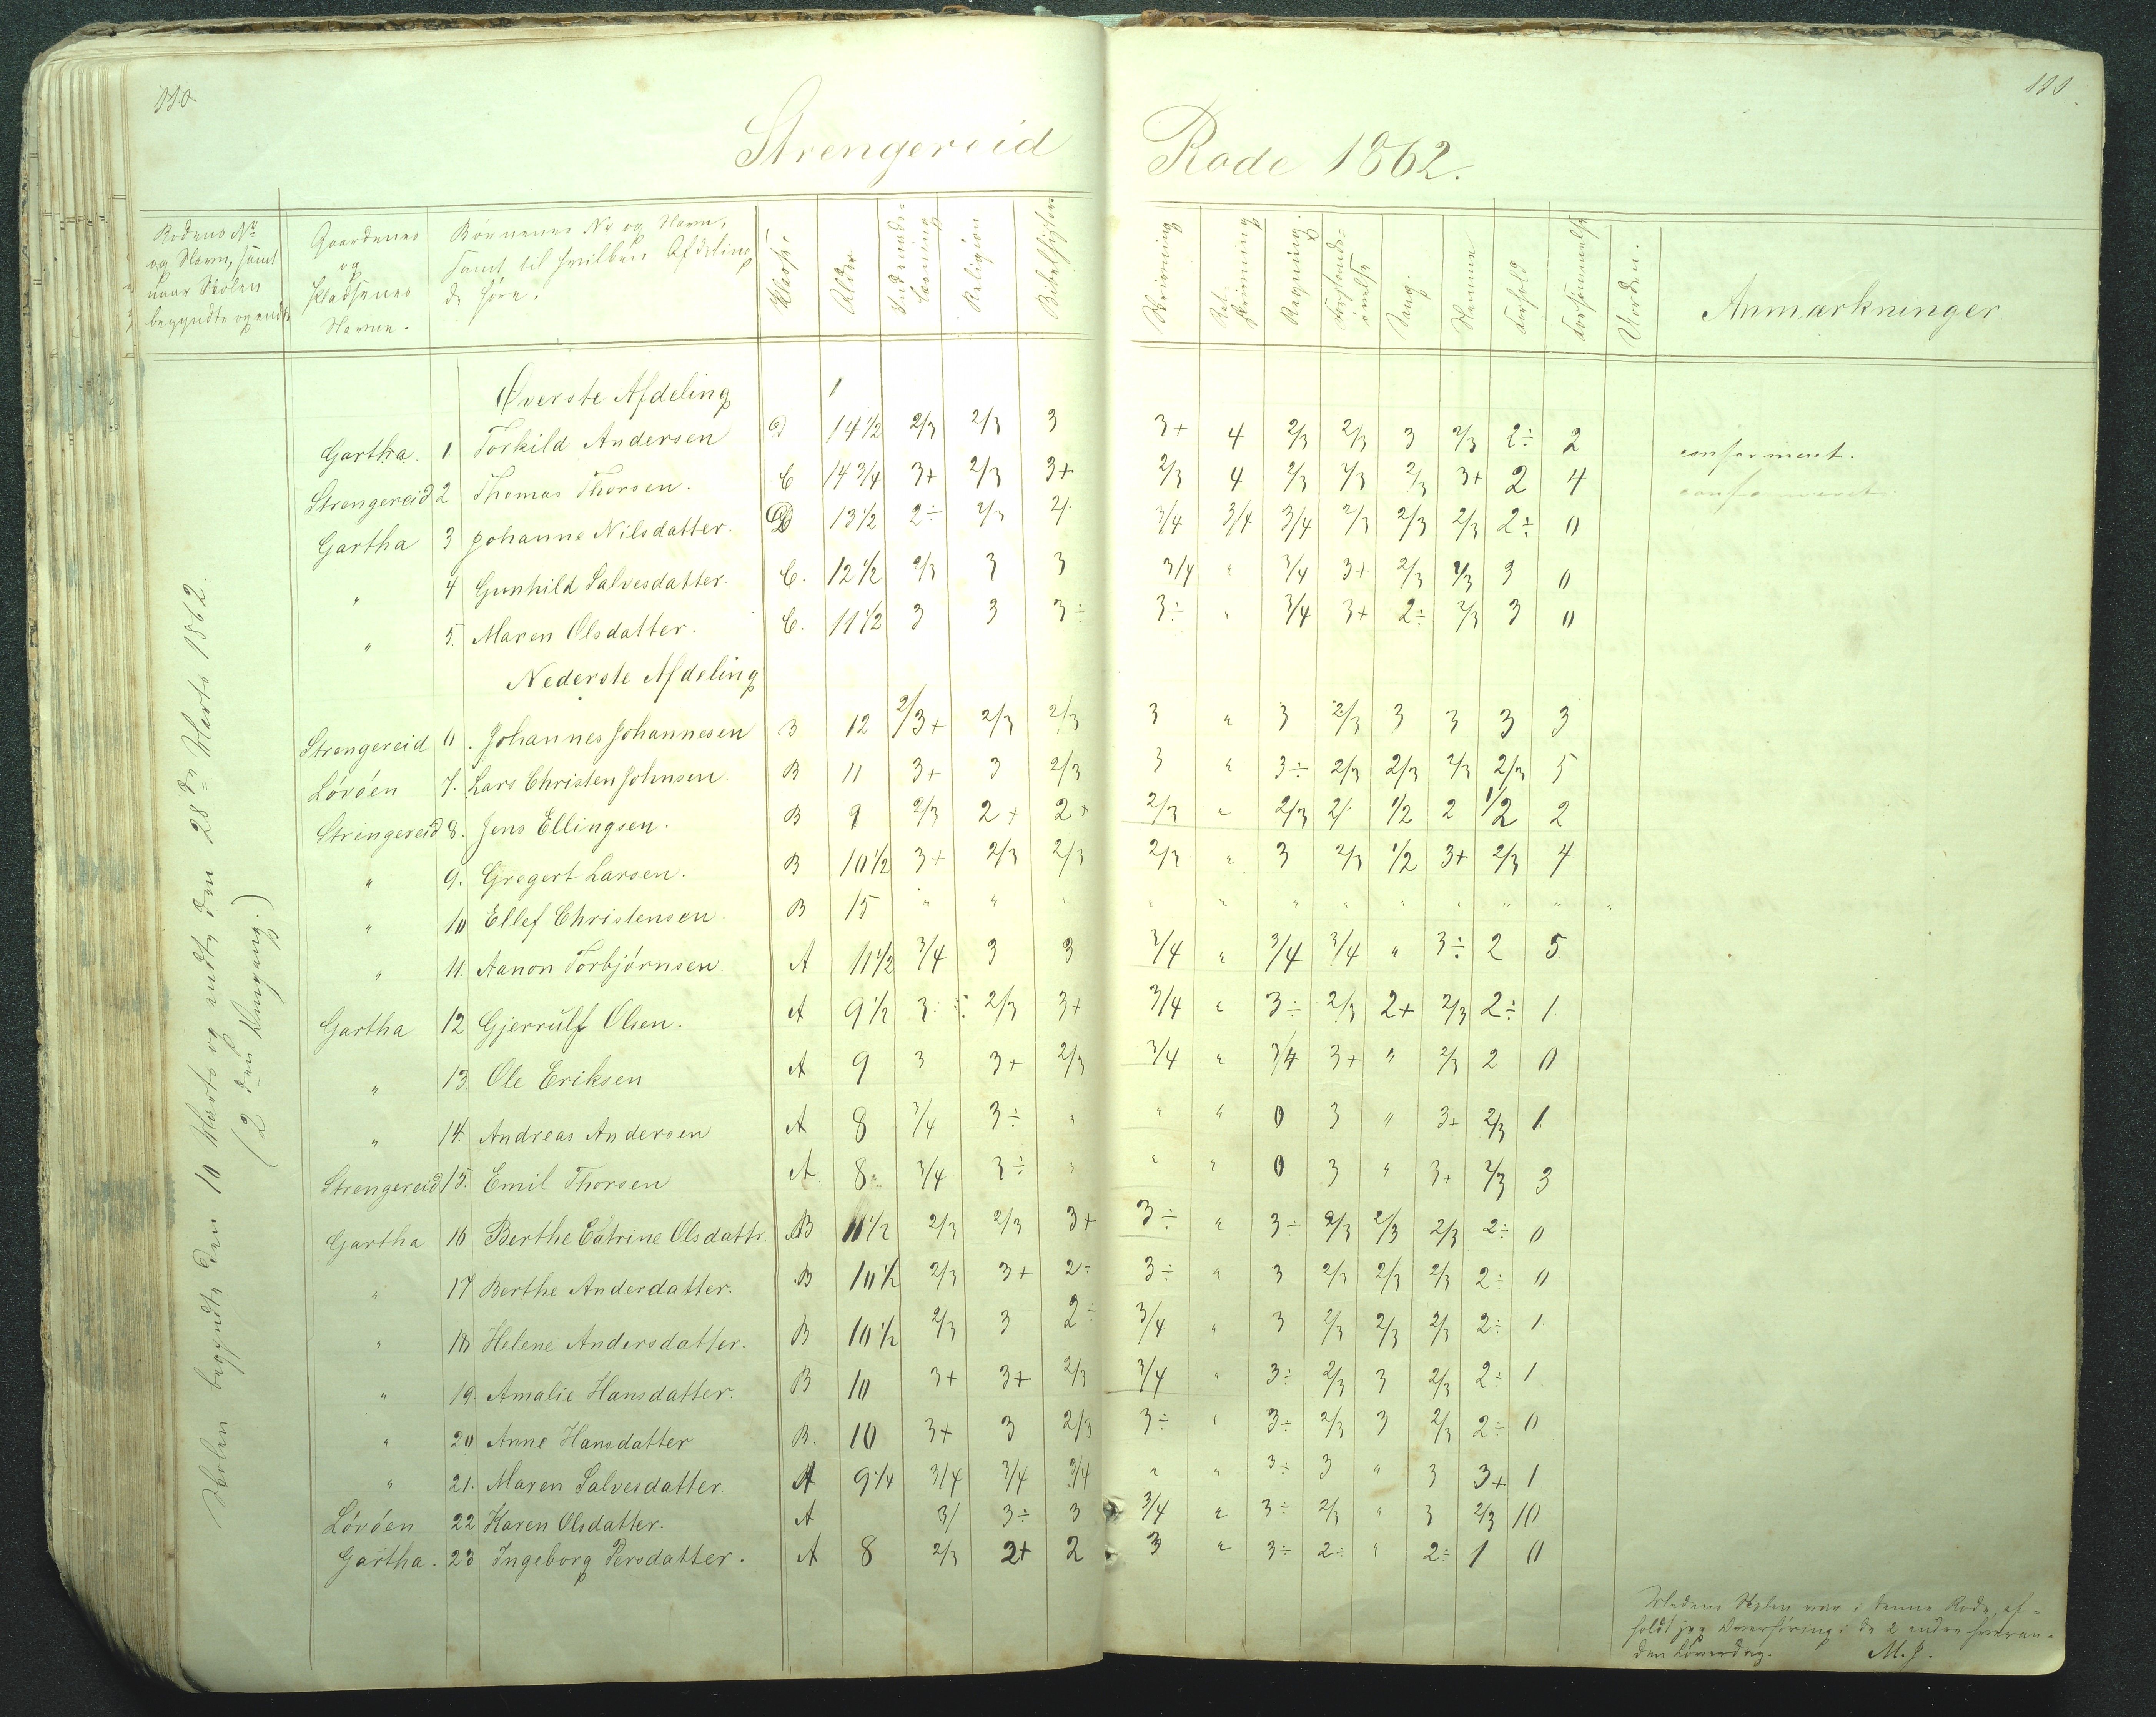 110.
111.
Strengereid Rode 1862.
Rodens No og Navn, samt naar Skolen begyndte og endte
Gaardenes og Pladsenes Navne.
Børnenes No og Navn, samt til hvilken Afdeling de høre.
Klasse
Alder
Indenadslæsning
Religion
Bibelhistorie
Skrivning
Retskrivning
Regning.
Forstandsøvelse
Sang.
Evne
Forhold
Forsømmelse
Uorden.
Anmærkninger.
Skolen begyndte den 10 Marts og endte den 28de Marts 1862.
(2den Omgang.)
Øverste Afdeling 1
Gartha. 1. Torkild Andersen D 14 1/2 2/3 2/3 3 3+ 4 2/3 2/3 3 2/3 2÷ 2 confirmeret.
Strengereid 2 Thomas Thorsen. C 14 3/4 3+ 2/3 3+ 2/3 4 2/3 2/3 2/3 3+ 2 4 confirmeret.
Gartha 3 Johanne Nilsdatter. D 13 1/2 2÷ 2/3 2/. 3/4 3/4 3/4 2/3 2/3 2/3 2÷ 0
" 4 Gunhild Salvesdatter. C. 12 1/2 2/3 3 3 3/4 " 3/4 3+ 2/3 2/3 3 0
" 5. Maren Olsdatter. C. 11 1/2 3 3 3÷ 3÷ " 3/4 3+ 2÷ 2/3 3 0
Nederste Afdeling
Strengereid 6. Johannes Johannesen B 12 2/3+ 2/3 2/3 3 " 3 2/3 3 3 3 3
Lövöen 7. Lars Christen Johnsen. B 11 3+ 3 2/3 3 " 3÷ 2/3 2/3 2/3 2/3 5
Strengereid 8. Jens Ellingsen. B 9 2/3 2+ 2+ 2/3 " 2/3 2/. 1/2 2 1/2 2
" 9. Gregert Larsen. B 10 1/2 3+ 2/3 2/3 2/3 " 3 2/3 1/2 3+ 2/3 4
" 10 Ellef Christensen. B 15 " " " " " " " " " " " "
" 11. Aanon Torbjörnsen. A 11 1/2 3/4 3 3 3/4 " 3/4 3/4 " 3÷ 2 5
Gartha 12 Gjerrulf Olsen. A 9 1/2 3÷ 2/3 3+ 3/4 " 3÷ 2/3 2+ 2/3 2÷ 1
" 13. Ole Eriksen A 9 3 3+ 2/3 3/4 " 3/4 3+ " 2/3 2 0
" 14. Andreas Andersen A 8 3/4 3÷ " " " 0 3 " 3+ 2/3 1
Strengereid 15. Emil Thorsen A 8 3/4 3÷ " " " 0 3 " 3+ 2/3 3
Gartha 16 Berthe Catrine Olsdattr. B 11 1/2 2/3 2/3 3+ 3÷ " 3÷ 2/3 2/3 2/3 2÷ 0
" 17 Berthe Andersdatter. B 10 1/2 2/3 3+ 2÷ 3÷ " 3 2/3 2/3 2/3 2÷ 0
" 18 Helene Andersdatter. B 10 1/2 2/3 3 2÷ 3/4 " 3 2/3 2/3 2/3 2÷ 1
" 19. Amalie Hansdatter. B 10 3+ 3+ 2/3 3/4 " 3÷ 2/3 3 2/3 2÷ 1
" 20 Anne Hansdatter B. 10 3+ 3 2/3 3÷ " 3÷ 2/3 3 2/3 2÷ 0
" 21. Maren Salvesdatter. A 9 1/4 3/4 3/4 3/4 " " 3÷ 3 " 3 3+ 1
Lövöen 22 Karen Olsdatter. A 3/ 3÷ 3 3/4 " 3÷ 2/3 " 3 2/3 10
Gartha. 23 Ingeborg Persdatter. A 8 2/3 2+ 2 3 " 3÷ 2÷ " 2÷ 1 0
Medens Skolen var i denne Rode, af-
holdt jeg i de 2
den Löverdag. M. J.